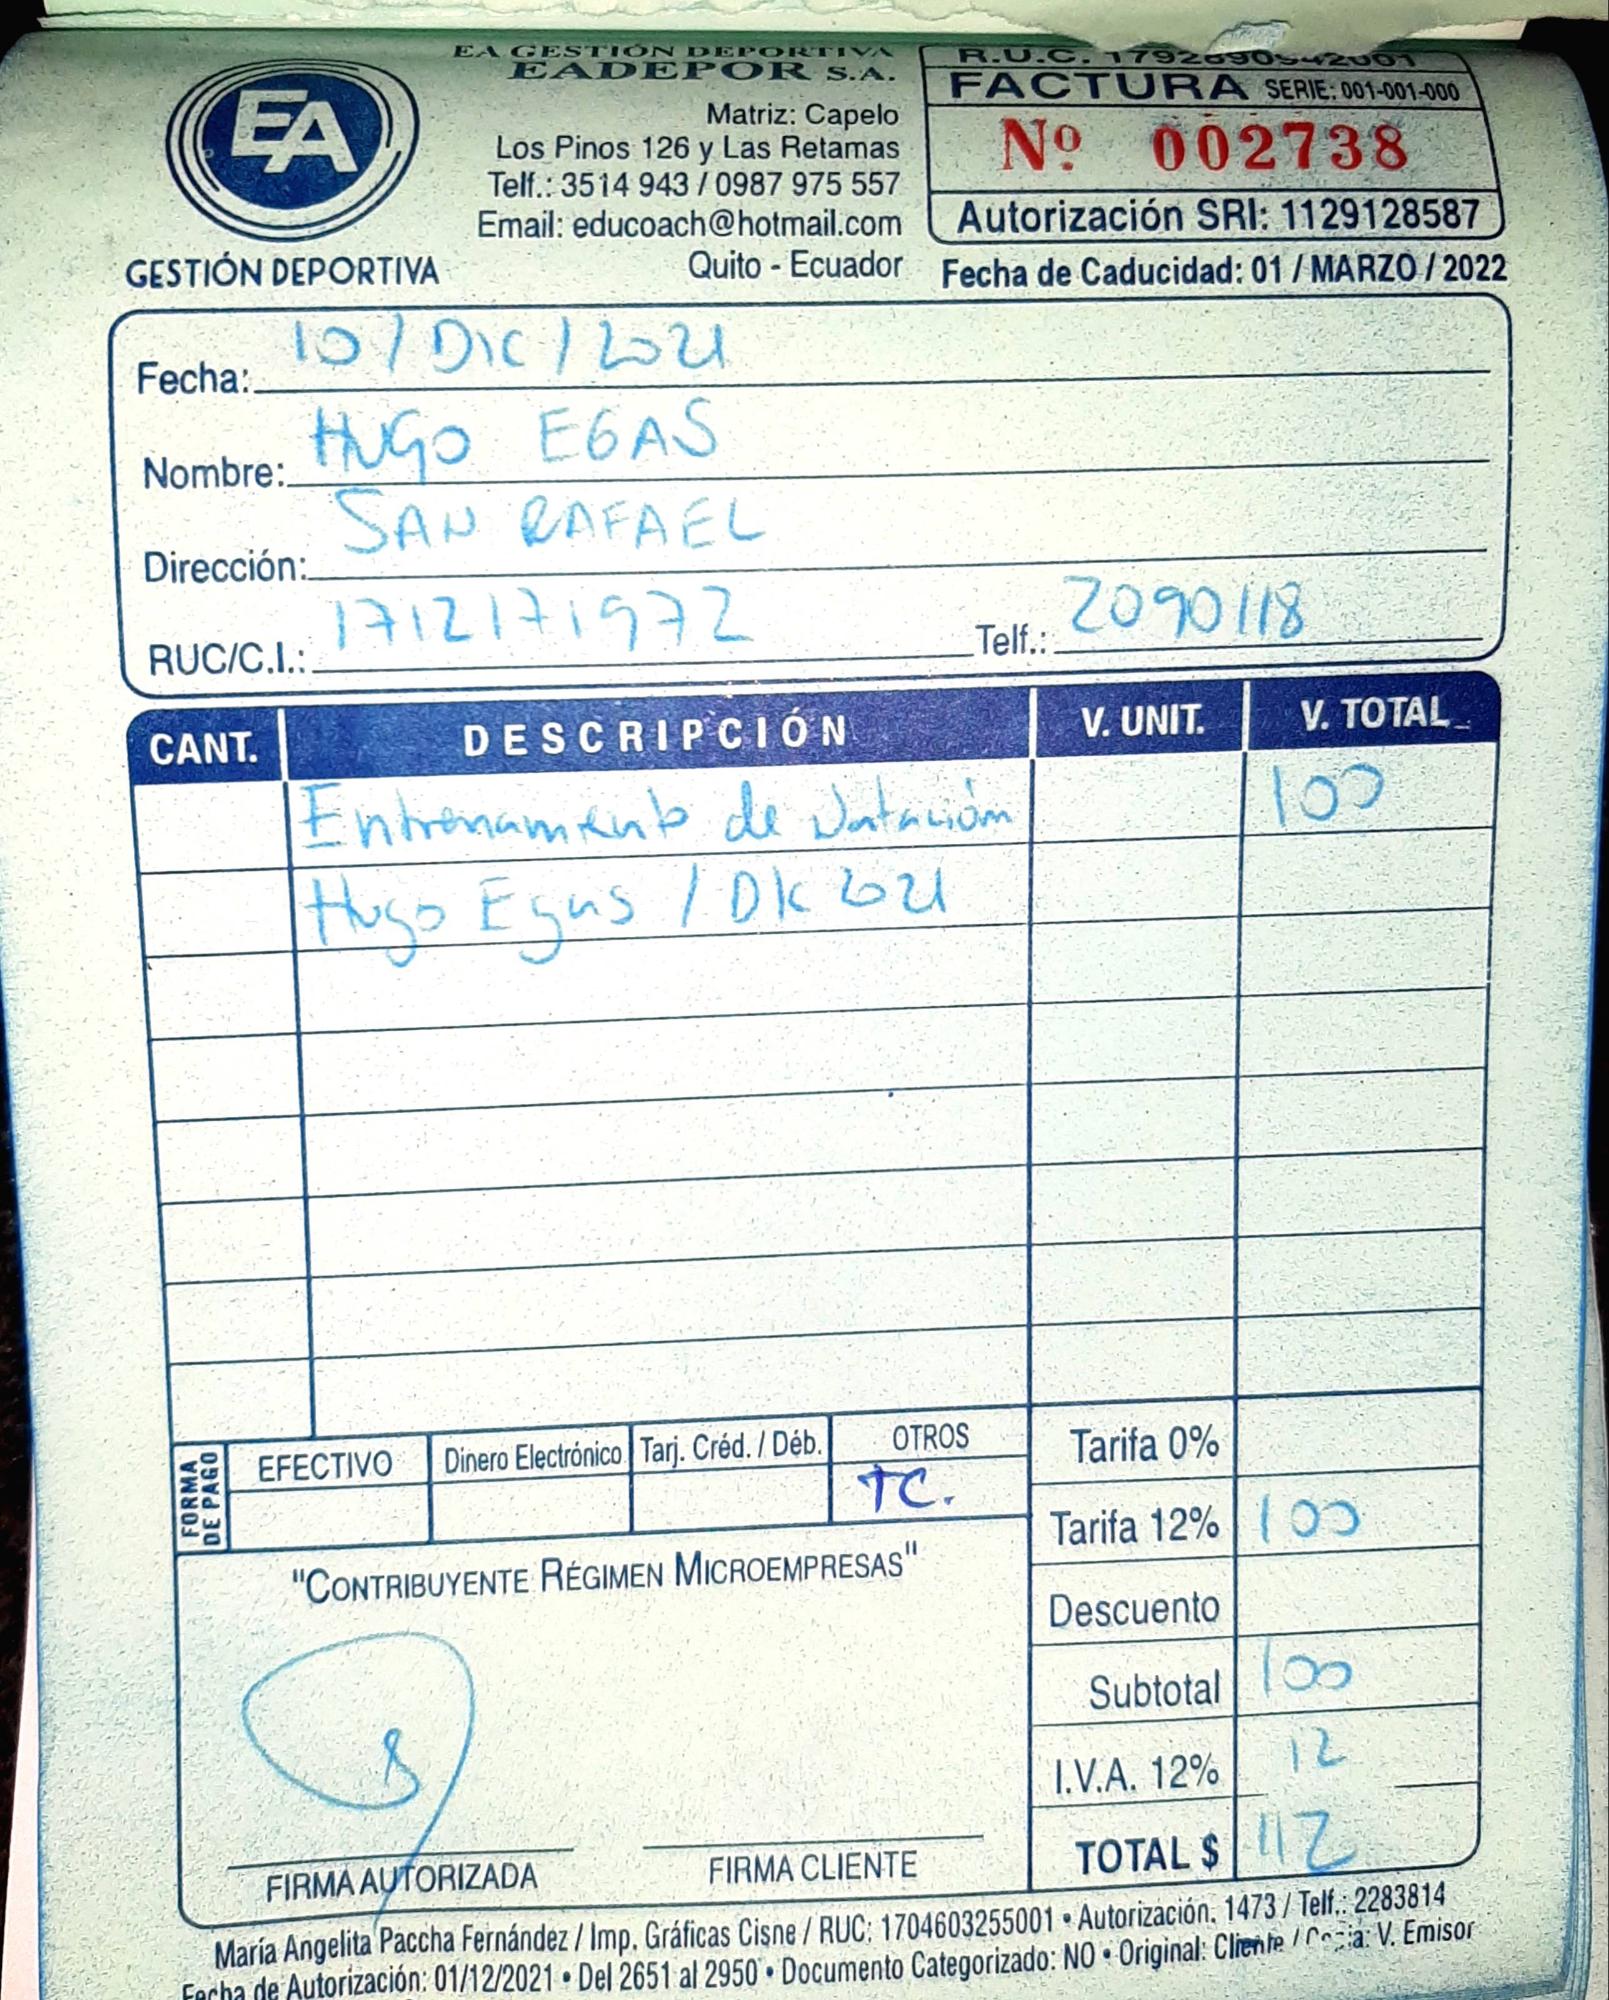 EA GESTIÓN DEPORTIVA
EADEPOR S.A.
EA
GESTIÓN DEPORTIVA
Matriz: Capelo
Los Pinos 126 y Las Retamas
Telf.: 3514 943 / 0987 975 557
Email: educoach@hotmail.com
Quito - Ecuador
R.U.C. 1792690542001
FACTURA SERIE: 001-001-000
Nº 002738
Autorización SRI: 1129128587
Fecha de Caducidad: 01 / MARZO / 2022
Fecha: 10 / DIC / 2021
Nombre: HUGO EGAS
Dirección: SAN RAFAEL
RUC/C.I.: 1712171972 Telf.: 2090118
CANT. DESCRIPCIÓN V. UNIT. V. TOTAL
Entrenamiento de Natación 100
Hugo Egas / DIC 2021
FORMA DE PAGO
EFECTIVO Dinero Electrónico Tarj. Créd. / Déb. OTROS
TC.
Tarifa 0%
Tarifa 12% 100
Descuento
Subtotal 100
I.V.A. 12% 12
TOTAL $ 112
"CONTRIBUYENTE RÉGIMEN MICROEMPRESAS"
FIRMA AUTORIZADA FIRMA CLIENTE
María Angelita Paccha Fernández / Imp. Gráficas Cisne / RUC: 1704603255001 • Autorización. 1473 / Telf.: 2283814
Fecha de Autorización: 01/12/2021 • Del 2651 al 2950 • Documento Categorizado: NO • Original: Cliente / Copia: V. Emisor